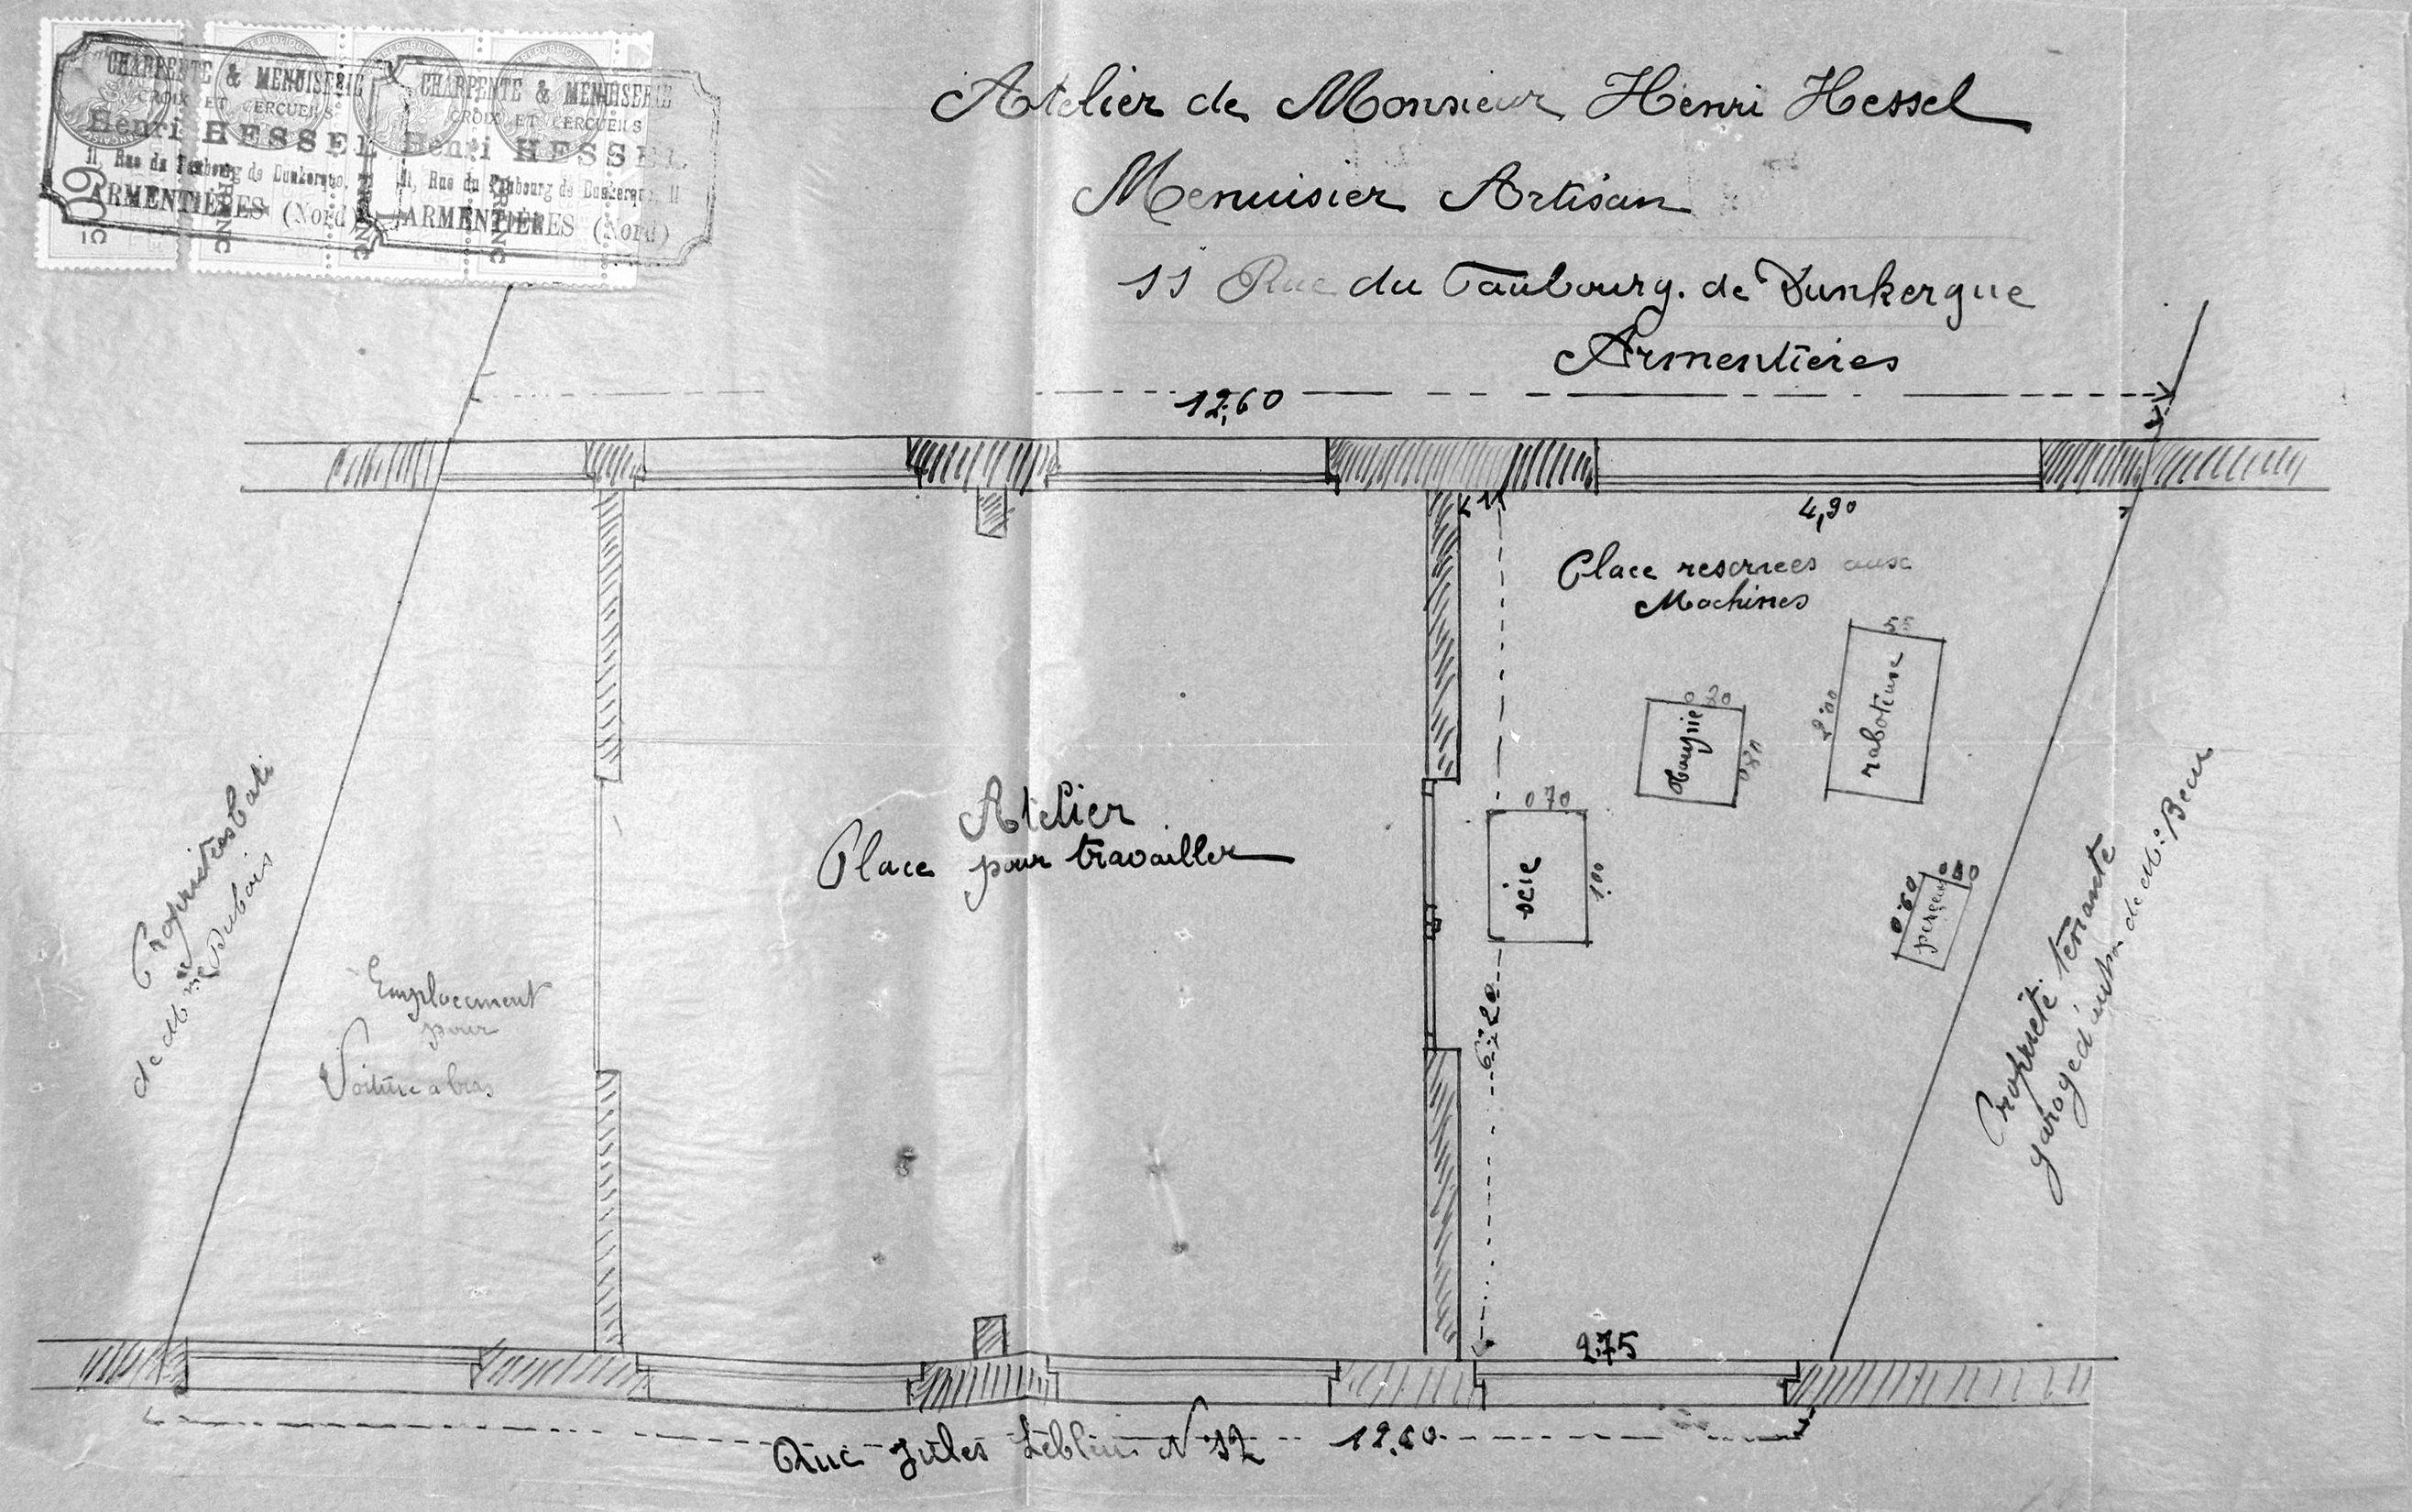 CHARPENTE & MENUISERIE
CROIX ET CERCUEILS
Henri HESSEL
11, Rue du Faubourg de Dunkerque,
ARMENTIÈRES (Nord)
CHARPENTE & MENUISERIE
CROIX ET CERCUEILS
Henri HESSEL
11, Rue du Faubourg de Dunkerque, 11
ARMENTIÈRES (Nord)
60
FRANC
FRANC
FRANC
Atelier de Monsieur Henri Hessel
Menuisier Artisan
11 Rue du Faubourg. de Dunkerque
Armentières
12,60
4,90
Place reservées aux
Machines
55
raboteuse
2,00
0 80
0 80
0 70
scie
1,00
0,60
perceuse
6,20
Atelier
Place pour travailler
Emplacement
pour
Voiture a bras
Propriétés bati
de Mme Dubois
Propriété tenante
garage d'
de Mr Beun
275
Rue Jules Lebleu N 12
12,60